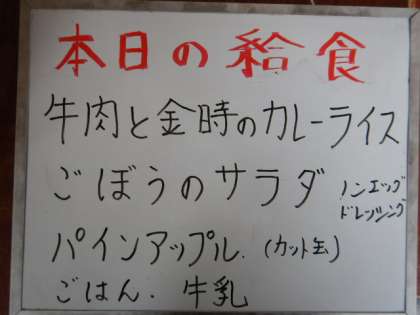 本日の給食
牛肉と金時のカレーライス
ごぼうのサラダ ノンエッグ
ドレッシング
パインアップル.(カット缶)
ごはん. 牛乳